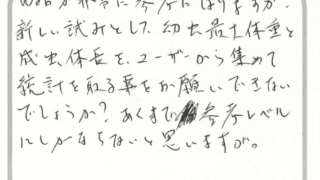 Webが非常に参考になりますが、
新しい試みとして、幼虫最大体重と
成虫体長を、ユーザーから集めて
統計を取る事をお願いできない
でしょうか?あくまで参考レベル
にしかならないと思いますが。